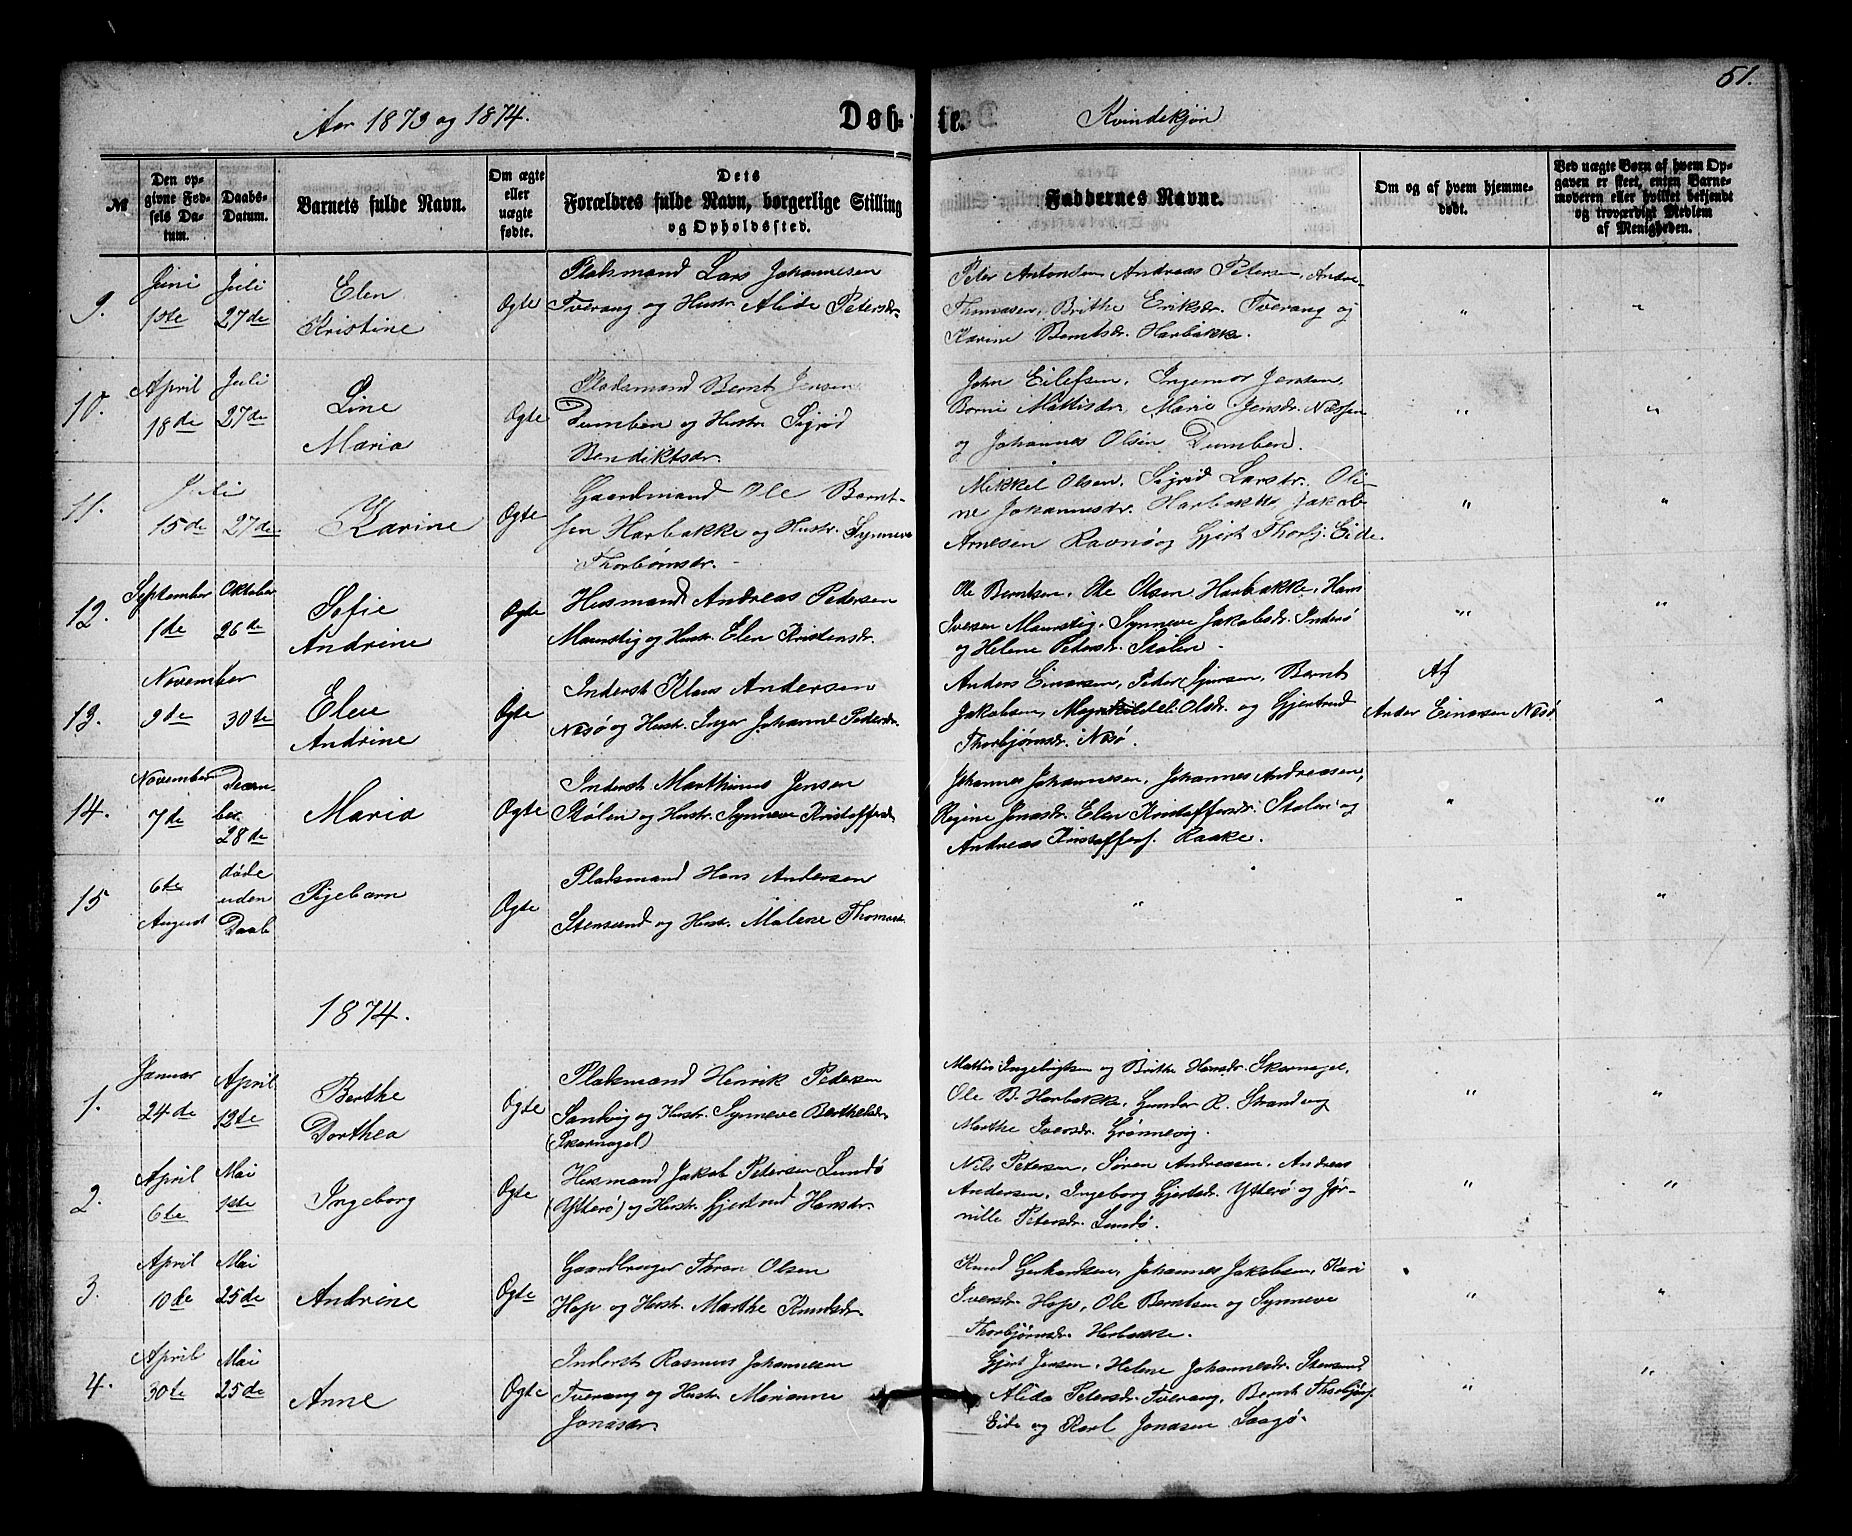 51.
Aar 1873 og 1874.
Døb-
te.
Kvindekjøn
№
Den op-
givne Fød-
sels Da-
tum.
Daabs-
Datum.
Barnets fulde Navn.
Om ægte
eller
uægte
fødte.
Dets
Forældres fulde Navn, borgerlige Stilling
og Opholdssted.
Faddernes Navne.
Om og af hvem hjemme-
døbt.
Ved uægte Børn af hvem Op-
gaven er skeet, enten Barne-
moderen eller hvilket bekjendt
og troværdigt Medlem
af Menigheden.
9.
Juni
1ste
Juli
27de
Elen
Kristine
Ægte
Pladsmand Lars Johannesen
Tverang og Hustr. Alide Petersdr.
Peter Antonsen, Andreas Petersen, Andr.
Thomasen, Brithe Eriksdr. Tverang og
Karine Berntsdr. Harbakke.
"
"
10.
April
18de
Juli
27de
Line
Maria
Ægte
Pladsmand Bernt Jensen
Dumben og Hustr. Sigrid
Bendiktsdr.
John Eilefsen, Ingemor Jensen,
Borni Mattisdr. Marie Jensdr. Næssen
og Johannes Olsen Dumben.
"
"
11.
Juli
15de
27de
Karine
Ægte
Gaardmand Ole Bernt-
sen Harbakke og Hustr. Synneve
Thorbørnsdr.
Mikkel Olsen, Sigrid Larsdr. Oli-
ne Johannesdr. Harbakke, Jakob
Arnesen Ravnø og Gjert Thorbj. Eide.
"
"
12.
September
1de
Oktober
26de
Sofie
Andrine
Ægte
Husmand Andreas Pedersen
Maurstig og Hustr. Elen Kristensdr.
Ole Berntsen, Ole Olsen Harbakke, Hans
Iversen Maurstig, Synneve Jakobsdr. Inderø
og Helene Pedersdr. Stølen.
"
"
13.
November
9de
30te
Elen
Andrine
Ægte
Inderst Klaus Andersen
Nesø og Hustr. Inger Johanne Pedersdr.
Anders Einarsen, Peder Sjursen, Bernt
Jakobsen, Olsdr. og Gjertrud
Thorbjørnsdr. Nesø.
Af
Ander Einarsen Nesø
"
14.
November
7de
Decem-
ber
28de
Maria
Ægte
Inderst Marthinus Jensen
Stølen og Hustr. Synneve Kristoffersdr.
Johannes Johannesen, Johannes Andreasen,
Regine Jonasdr. Elen Kristoffersdr. Stølen og
Andreas Kristoffers. Raake.
"
"
15
6te
August
døde
uden
Daab
Pigebarn
Ægte
Pladsmand Hans Andersen
Stensund og Hustr. Malene Thomasdr.
"
"
"
1874.
1.
Januar
24de
April
12te
Berthe
Dorthea
Ægte
Pladsmand Henrik Pedersen
Sandvig og Hustr. Synneve Berthelsdr.
(Skarnagel)
Mattis Ingebrigtsen og Brithe Hansdr. Skarnagel,
Ole B. Harbakke, Gunder R. Strand og
Marthe Iversdr. Grønnevig.
"
"
2.
April
6te
Mai
1ste
Ingeborg
Ægte
Husmand Jakob Petersen Lundø
(Ytterø) og Hustr. Gjertrud Hansdr.
Nils Petersen, Søren Andreasen, Andreas
Andersen, Ingeborg Gjertsdr. Ytterø og Jør-
nille Petersdr. Lundø.
"
"
3.
April
10de
Mai
25de
Andrine
Ægte
Gaardbruger Thron Olsen
Hop og Hustr. Marthe Knudsdr.
Knud Gerhardsen, Johannes Jakobsen, Kari
Iversdr. Hop, Ole Berntsen og Synneve
Thorbjørnsdr. Harbakke.
"
"
4.
April
30te
Mai
25de
Anne
Ægte
Inderst Rasmus Johannesen
Tverang og Hustr. Marianne
Jonasdr.
Gjert Jensen, Helene Johannesdr. Stensund,
Alida Petersdr. Tverang, Bernt Thorbjørns.
Eide og Karl Jonasen Saagø.
"
"